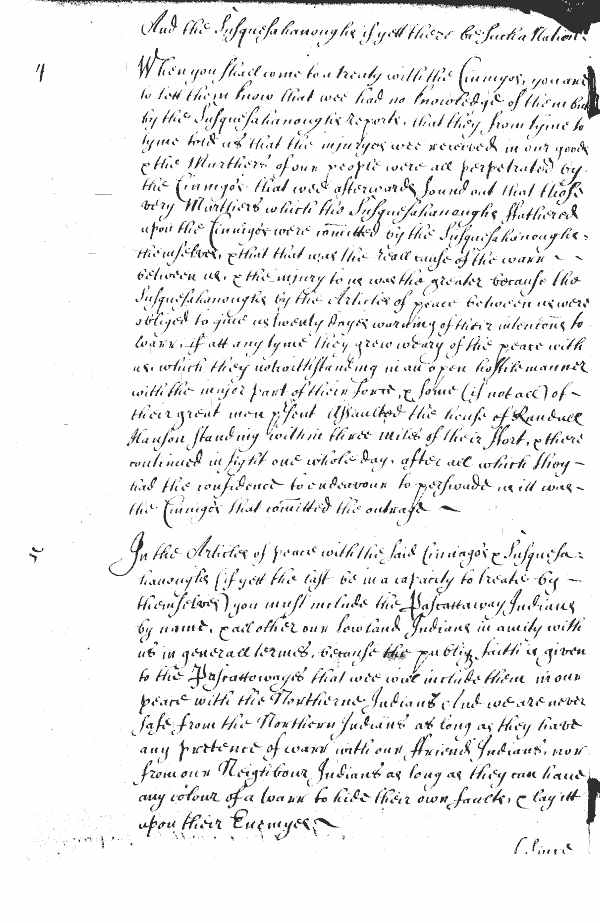 And the Susquesahanoughs if yett there be such a Nation.
4
When you shall come to a treaty with the Cinnigos, you are
to lett them know that wee had no knowledge of them but
by the Susquesahanoughs reports, that they from tyme to
tyme told us that the injuryes wee received in our goods
& the Murthers of our people were all perpetrated by
the Cinnigos that wee afterwards found out that those
very Murthers which the Susquesahanoughs ffathered
upon the Cinnigos were comitted by the Susquesahanoughs
themselves, & that that was the reall cause of the warr
between us, & the injury to us was the greater because the
Susquesahanoughs by the Articles of peace between us were
obliged to give us twenty dayes warning of their intentions to
warr, if att any tyme they grew weary of the peace with
us, which they notwithstanding in an open hostile manner
with the major part of their force, & some (if not all) of
their great men p'sent Assaulted the house of Randall
Hanson standing within three miles of their ffort, & there
continued in sight one whole day, after all which they
had the confidence to endeavour to perswade us itt was
the Cinnigos that comitted the outrage
5
In the Articles of peace with the said Cinnigos & Susquesa=
hanoughs (if yett the last be in a capacity to treate by
themselves) you must include the Pascattaway Indians
by name, & all other our lowland Indians in amity with
us in generall termes, because the publiq faith is given
to the Pascattowayes that wee will include them in our
peace with the Northerne Indians And we are never
safe from the Northern Indians as long as they have
any pretence of warr with our ffriend Indians, nor
from our Neighbour Indians as long as they can have
any colour of a warr to hide their own faults, & lay itt
upon their Enemyes,